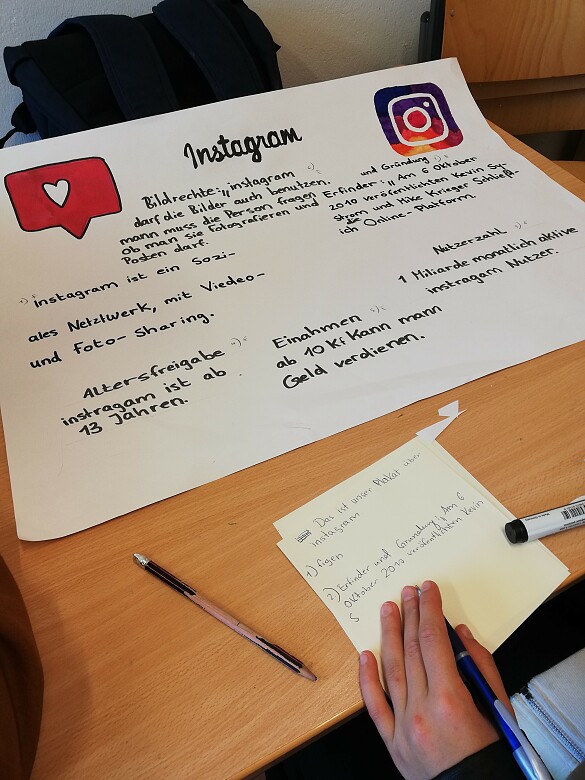 Instagram
Bildrechte: „instagram
darf die Bilder auch benutzen
mann muss die Person fragen
ob man sie Fotografieren und
Posten darf.
und Gründung
Erfinder: „ Am 6 oktober
2010 veröfentlichten Kevin Sy-
strom und Mike Krieger
die
ich Online-Platform.
instagram ist ein Sozi-
ales Netztwerk, mit Viedeo-
und Foto-Sharing.
Nutzerzahl
1 Miliarde monatlich aktive
instragram Nutzer.
Einahmen
ab 10 Kf Kann mann
Geld verdienen.
Altersfreigabe
instragam ist ab
13 Jahren.
Das ist unser Plakat über
instagram
1) figen
2) Erfinder und Gründung: „ Am 6
Oktober 2010 veröfentlichten Kevin
S